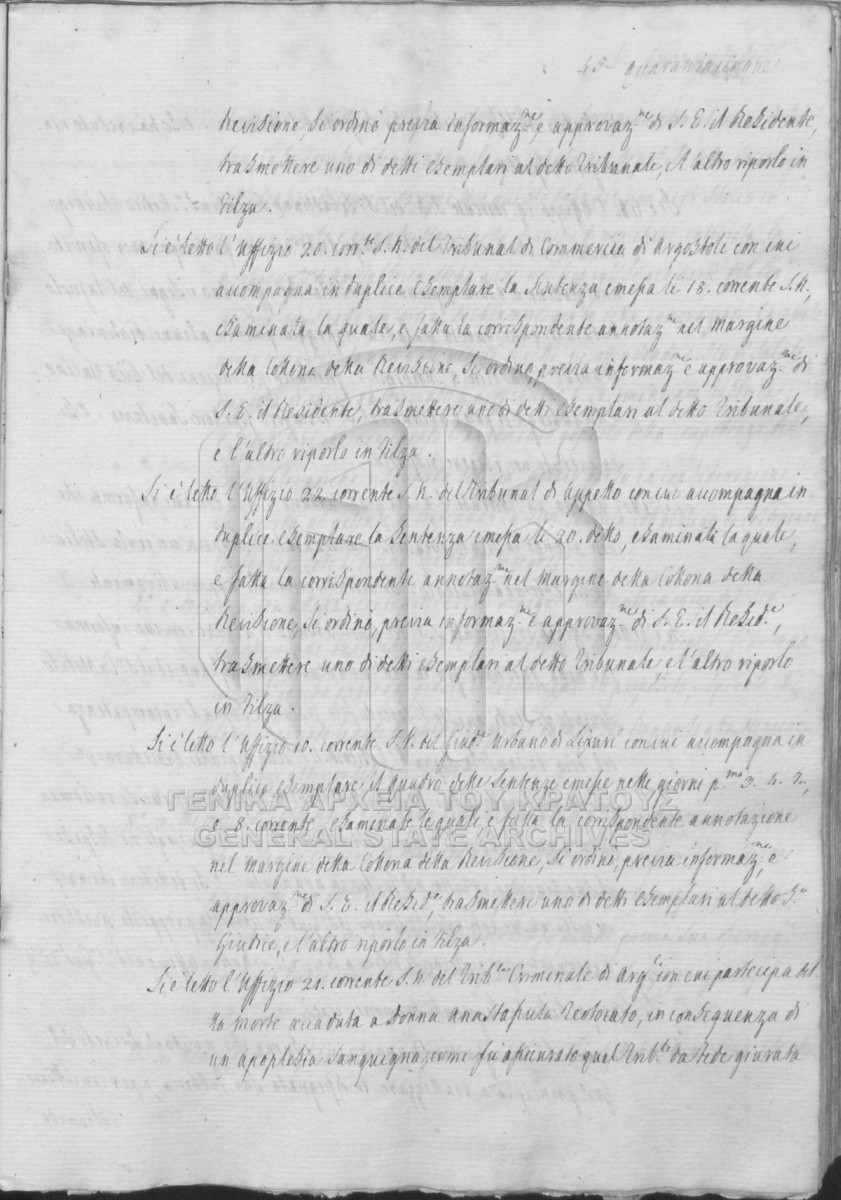 45 quarantacinque
Revisione, si ordinò previa informaz.ne, e approvaz.ne di S. E. il Residente,
trasmettere uno di detti esemplari al detto Tribunale, e l'altro riporlo in
Filza.
Si è letto l'Uffizio 20. corr.te S. N. del Tribunal di Commercio di Argostoli con cui
accompagna in duplice esemplare la Sentenza emessa li 18. corrente S. N.,
esaminata la quale, e fatta la corrispondente annotaz.ne nel margine
della Collona della Revisione, si ordinò, previa informaz.ne e approvaz.ne di
S. E. il Residente, trasmettere uno di detti esemplari al detto Tribunale,
e l'altro riporlo in Filza.
Si è letto l'Uffizio 22. corrente S. N. del Tribunal di Appello con cui accompagna in
duplice esemplare la Sentenza emessa li 20. detto, esaminata la quale,
e fatta la corrispondente annotaz.ne nel margine della Collona della
Revisione, si ordinò, previa informaz.ne e approvaz.ne di S. E. il Resid.e,
trasmettere uno di detti esemplari al detto Tribunale, e l'altro riporlo
in Filza.
Si è letto l'Uffizio 10. corrente S. V. del Giud.e Urbano di Lixuri con cui accompagna in
duplice esemplare il quadro delle Sentenze emesse nelli giorni p.mo 3. 4. 7.,
e 8. corrente, esaminate le quali e fatta la corrispondente annotazione
nel margine della Collona della Revisione, si ordinò, previa informaz.ne, e
approvaz.ne di S. E. il Resid.e, trasmettere uno di detti esemplari al detto
Giudice, e l'altro riporlo in Filza.
Si è letto l'Uffizio 21. corrente S. N. del Trib.le Criminale di Arg.li con cui partecipa del
la morte accaduta a Donna Anastasula in conseguenza di
un apoplesia sanguigna, come fù assicurato quel Trib.le da fede giurata
ΓΕΝΙΚΑ ΑΡΧΕΙΑ ΤΟΥ ΚΡΑΤΟΥΣ
GENERAL STATE ARCHIVES